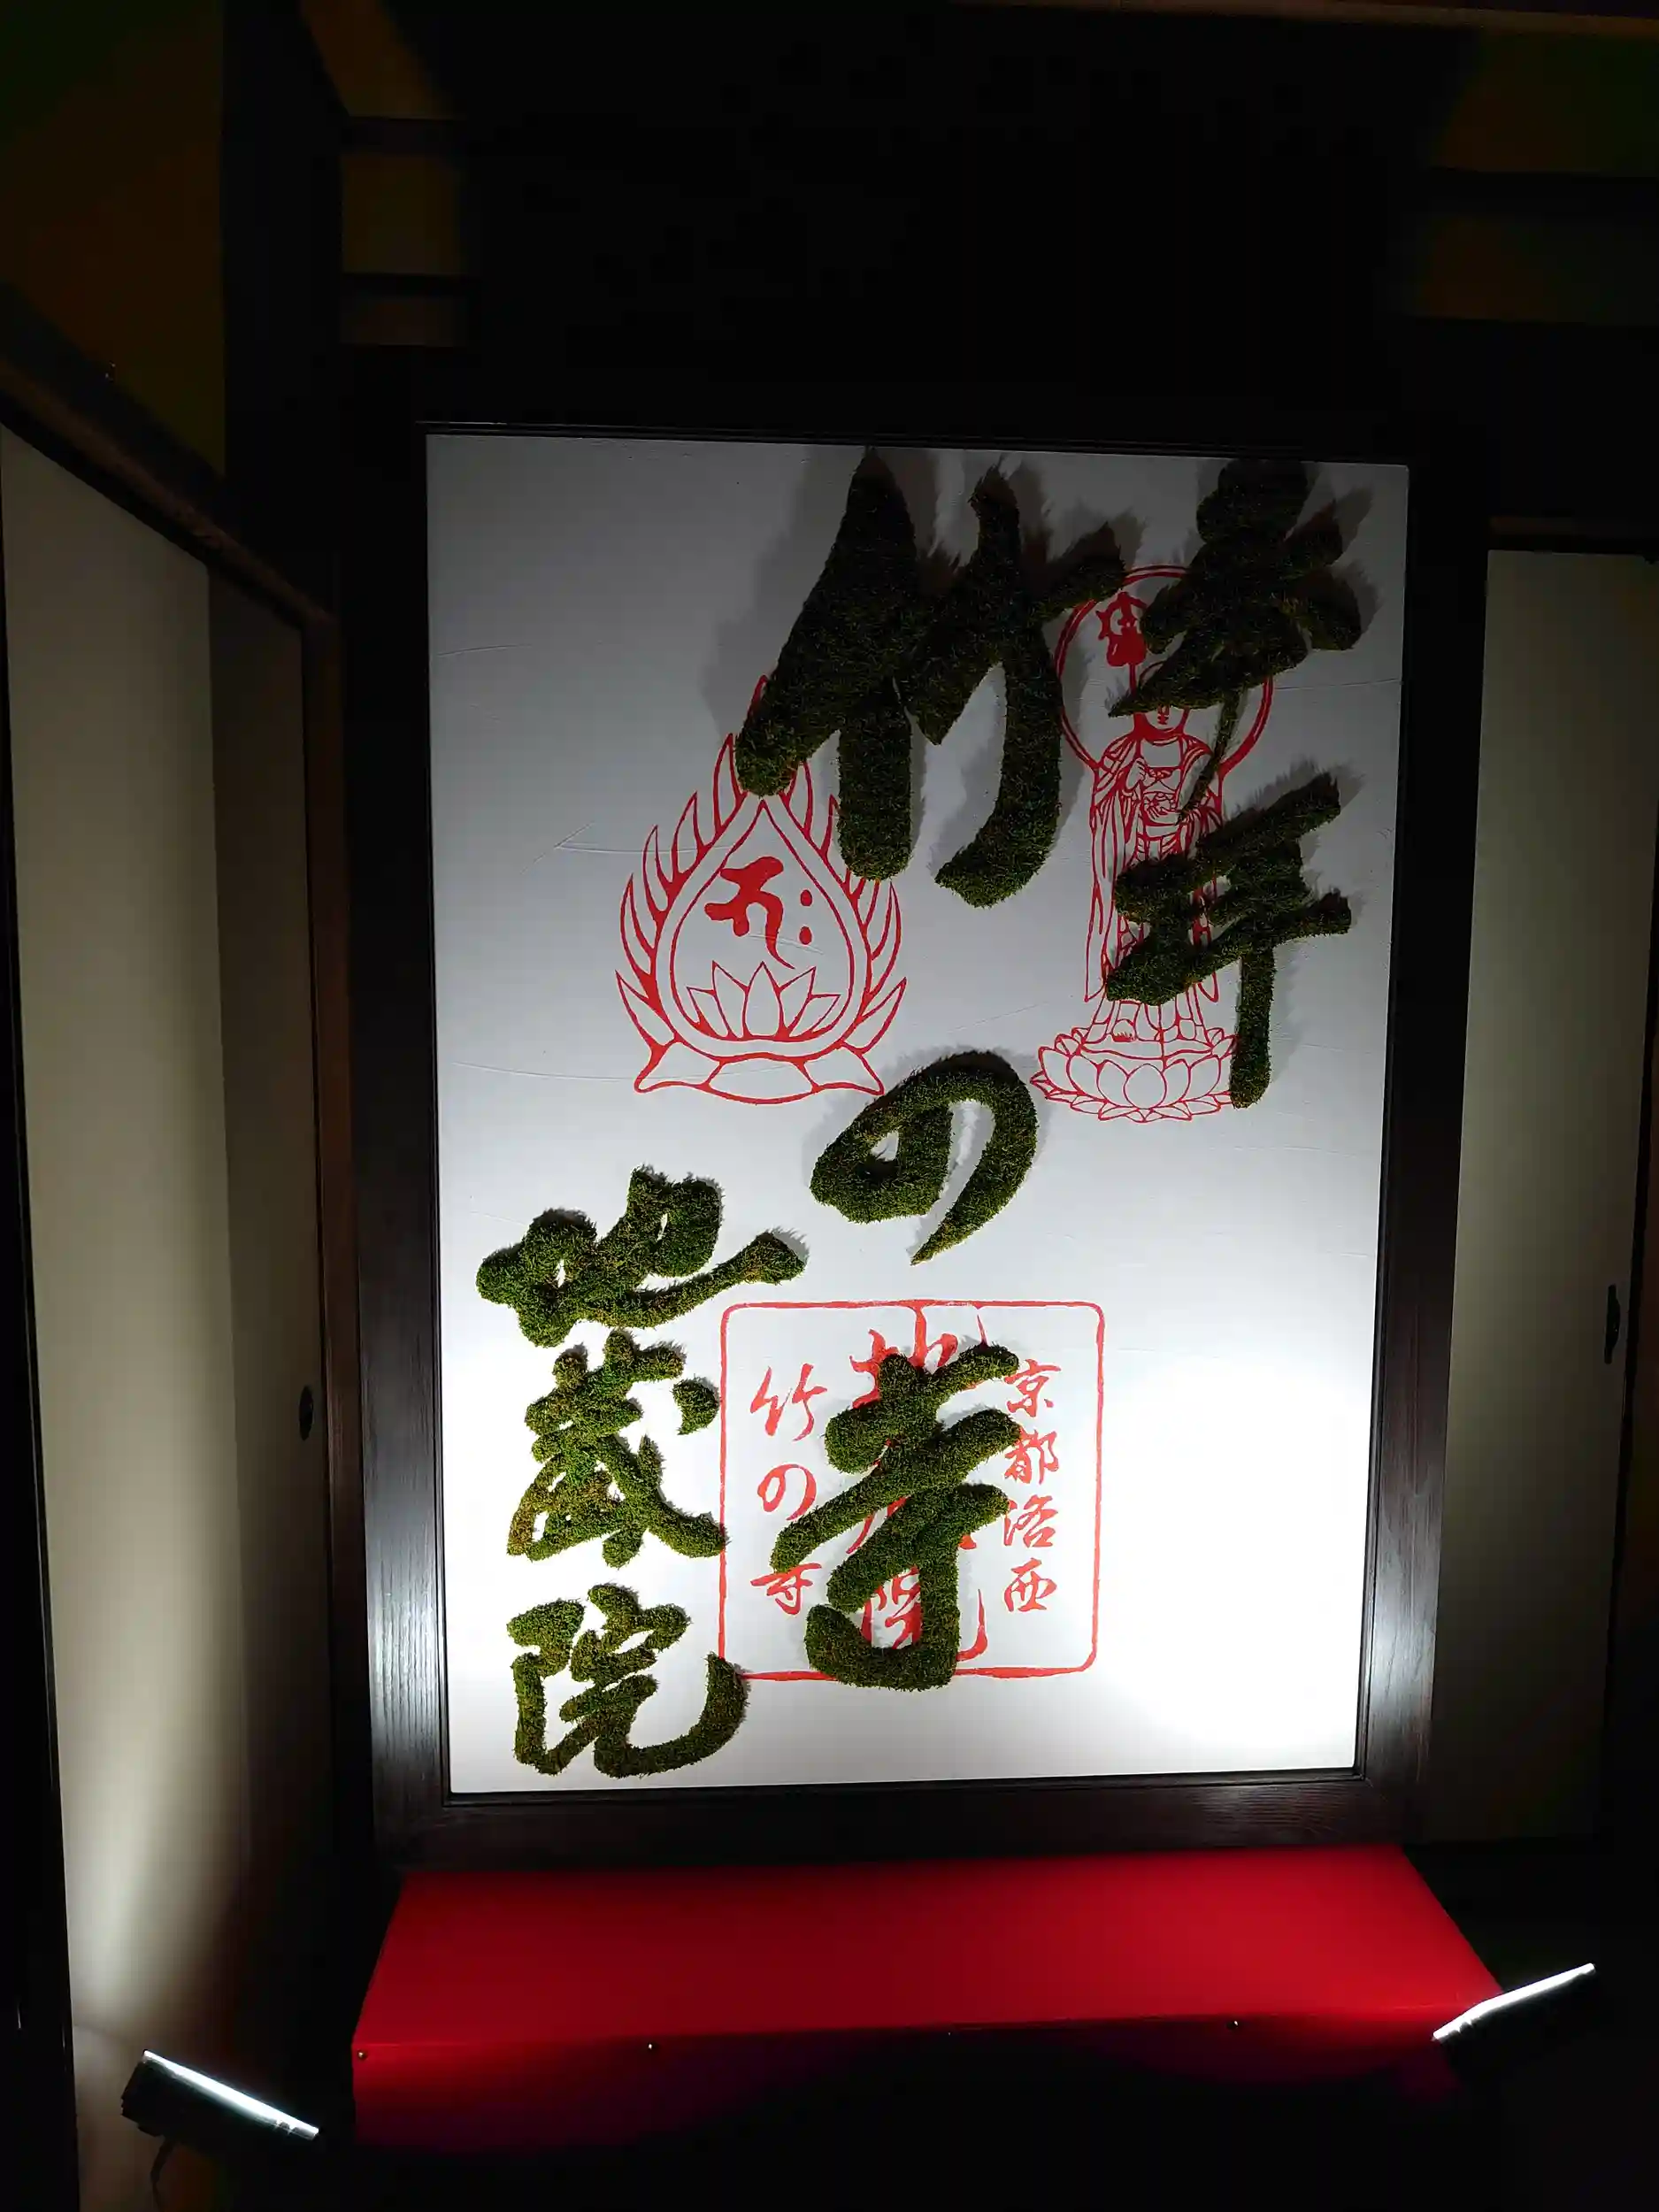 奉拝
竹の寺
地蔵院
京都洛西
地蔵院
竹の寺